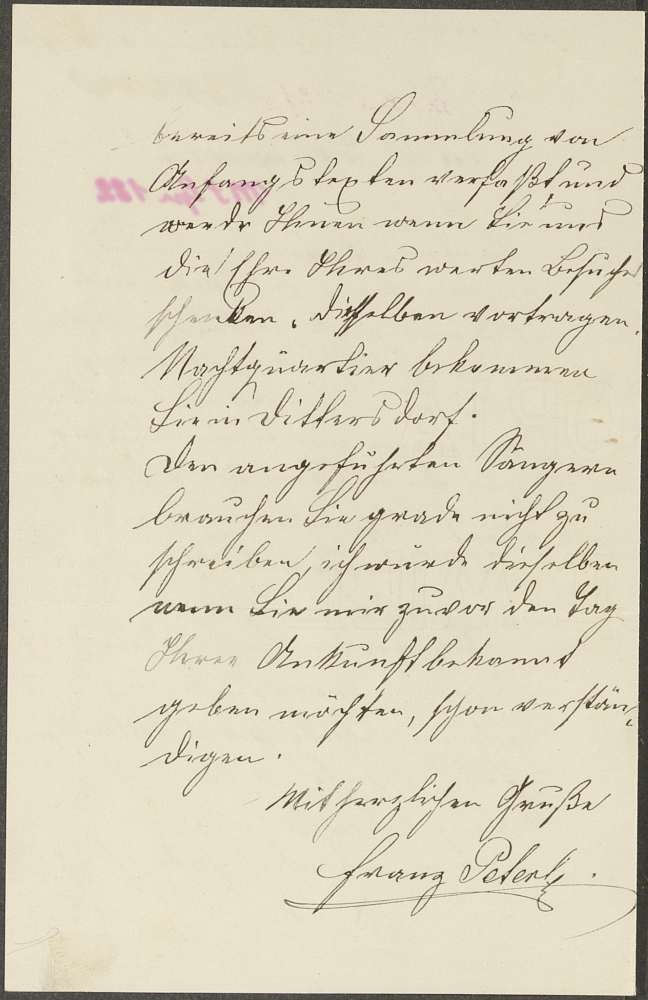 bereits eine Sammlung von
Anfangstexten verfaßt und
werde Ihnen wenn Sie uns
die Ehre Ihres werten Besuches
schenken, dieselben vortragen.
Nachtquartier bekommen
Sie in Dittersdorf.
Den angeführten Sängern
brauchen Sie grade nicht zu
schreiben, ich würde dieselben
wenn Sie mir zuvor den Tag
Ihrer Ankunft bekannt
geben möchten, schon verstän-
digen.
Mit herzlichen Gruße
Franz Peterl.